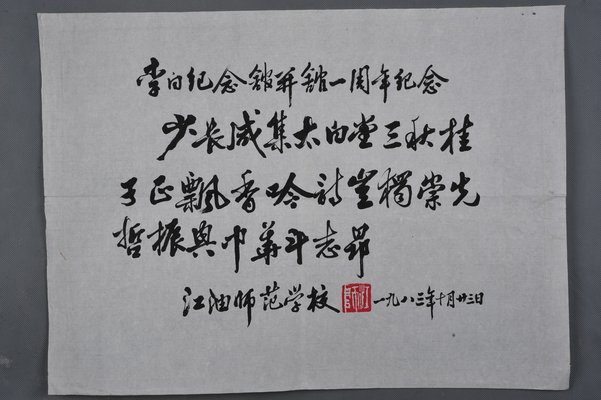 李白纪念舘开舘一周年纪念
少長咸集太白堂三秋桂
子正飄香吟詩豈獨崇先
哲振興中華斗志昂
江油师范学校 一九八三年十月廿三日